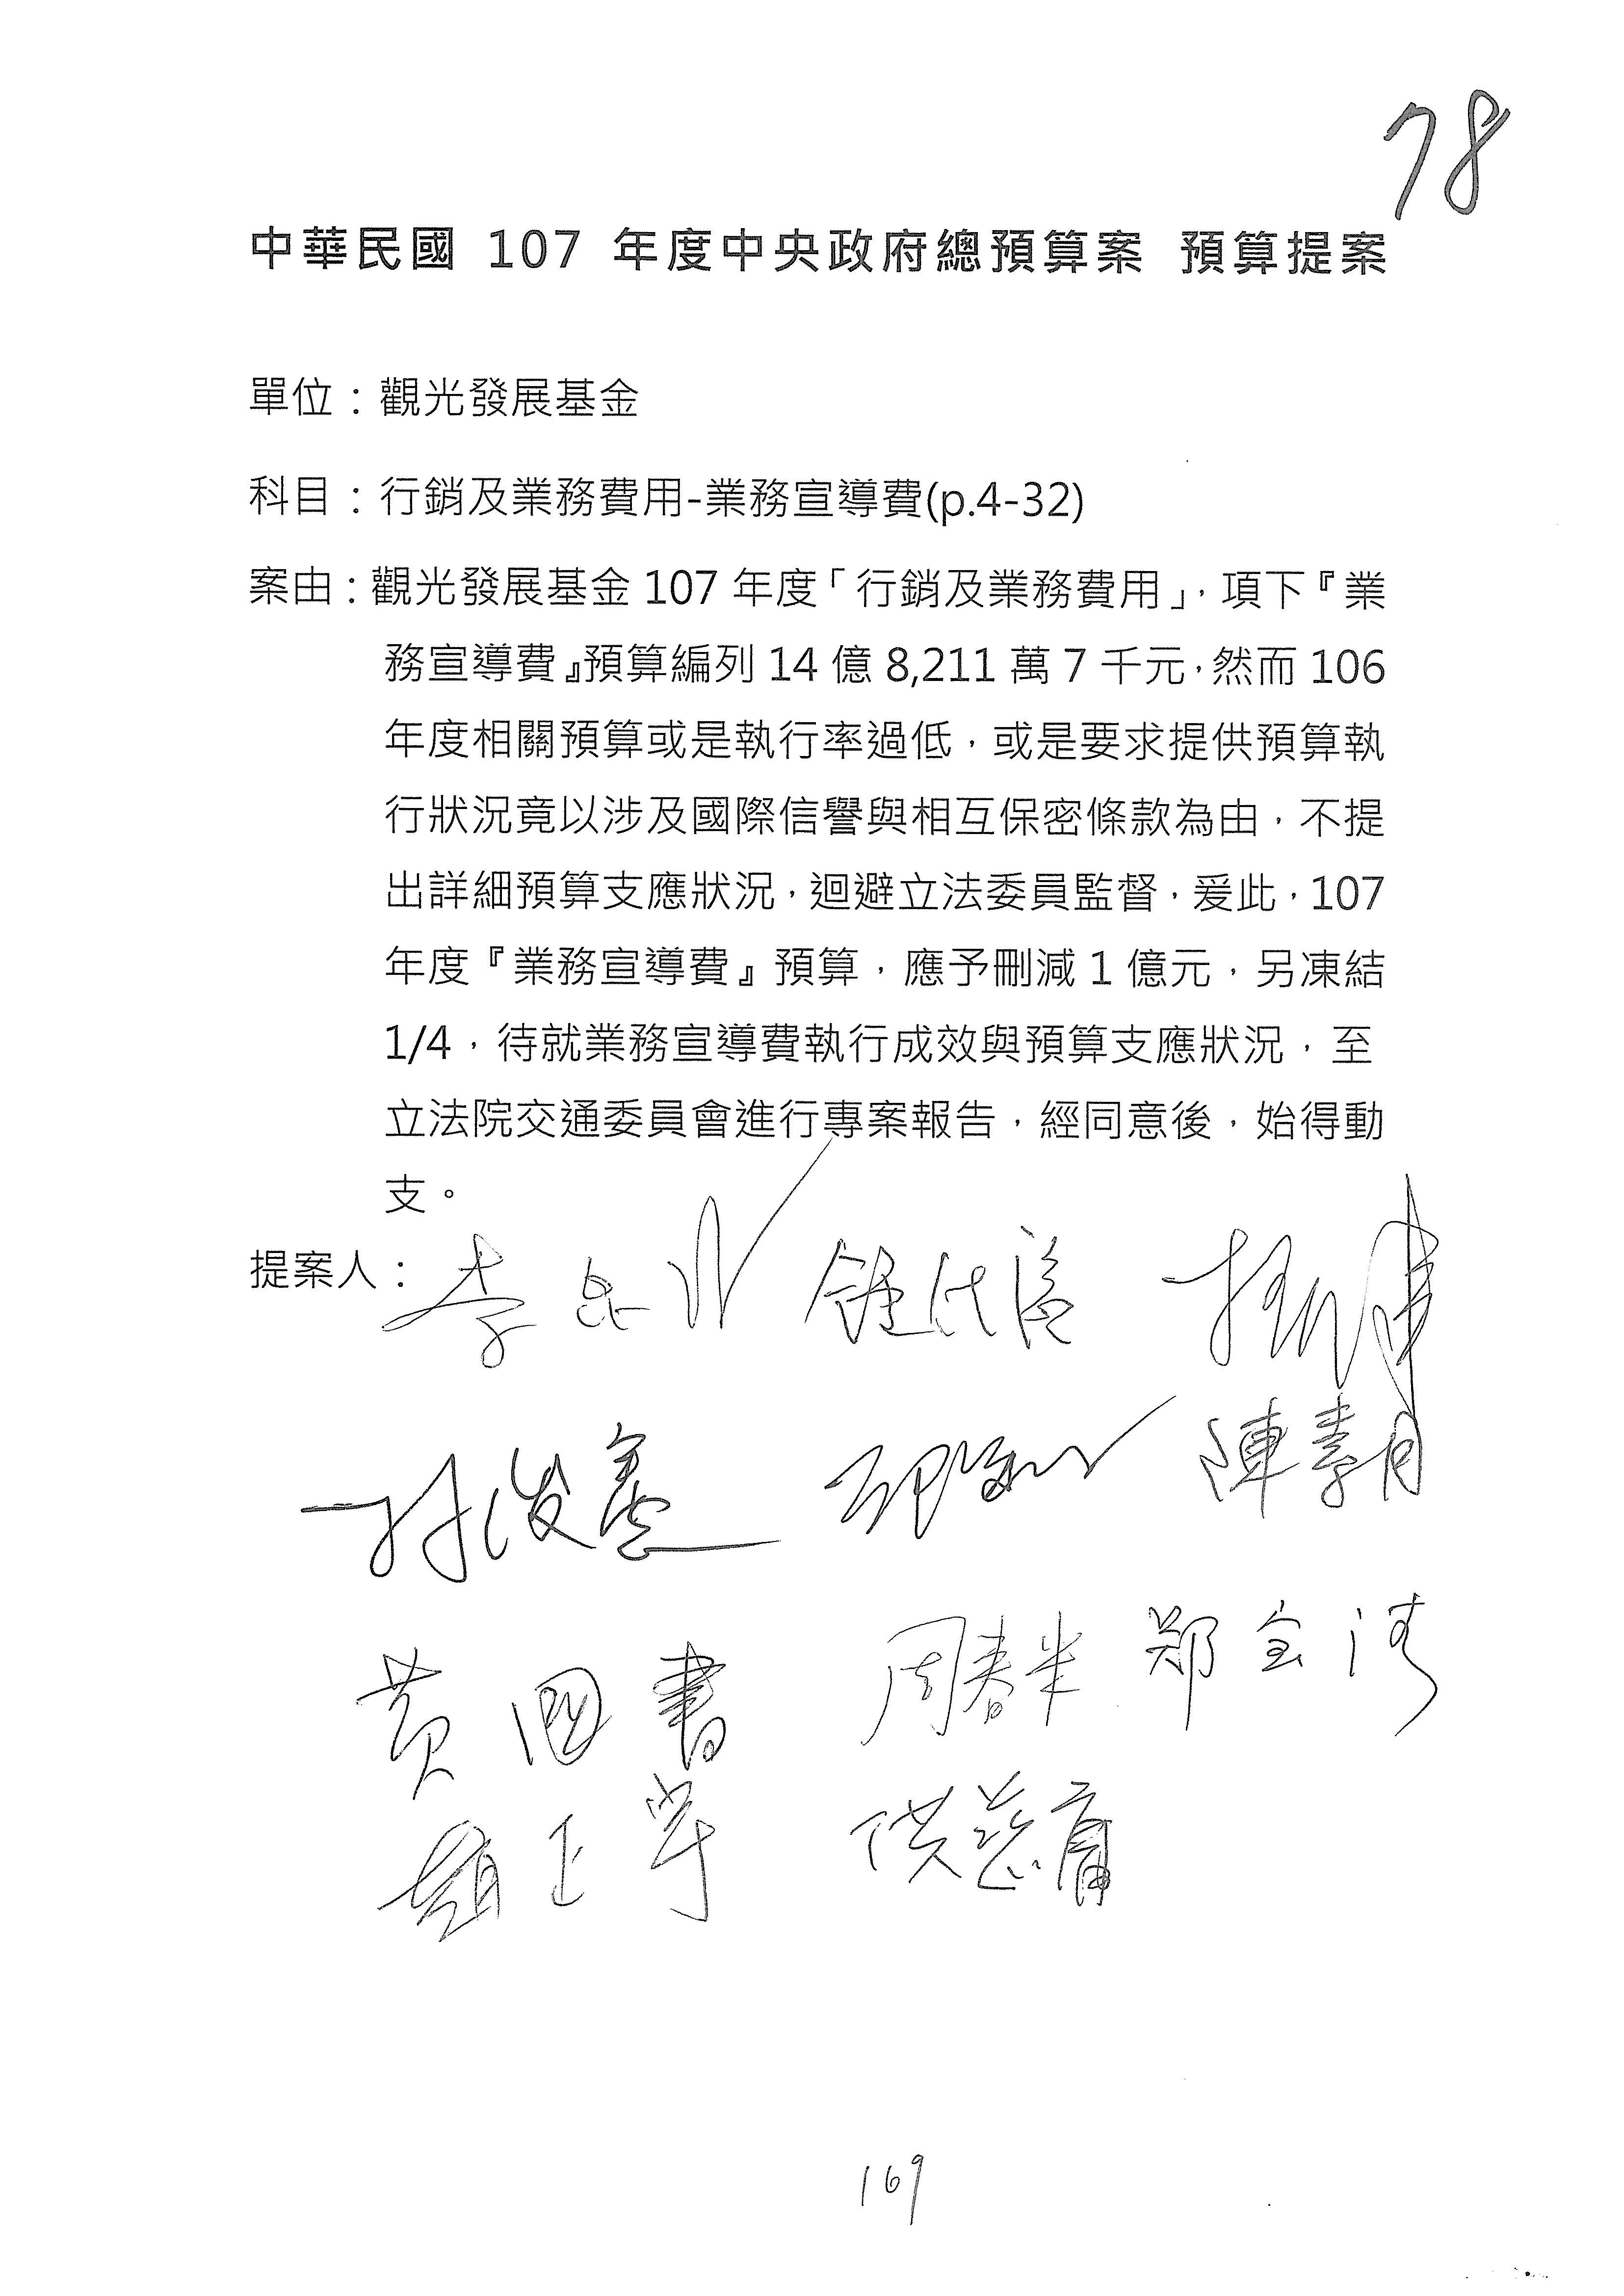 78
中華民國 107 年度中央政府總預算案 預算提案
單位：觀光發展基金
科目：行銷及業務費用-業務宣導費(p.4-32)
案由：觀光發展基金 107 年度「行銷及業務費用」，項下『業
務宣導費』預算編列 14 億 8,211 萬 7 千元，然而 106
年度相關預算或是執行率過低，或是要求提供預算執
行狀況竟以涉及國際信譽與相互保密條款為由，不提
出詳細預算支應狀況，迴避立法委員監督，爰此，107
年度『業務宣導費』預算，應予刪減 1 億元，另凍結
1/4，待就業務宣導費執行成效與預算支應狀況，至
立法院交通委員會進行專案報告，經同意後，始得動
支。
提案人：李昆
林俊憲 陳素月
黃國書 周春米 郑宝清
趙正宇 洪慈庸
169